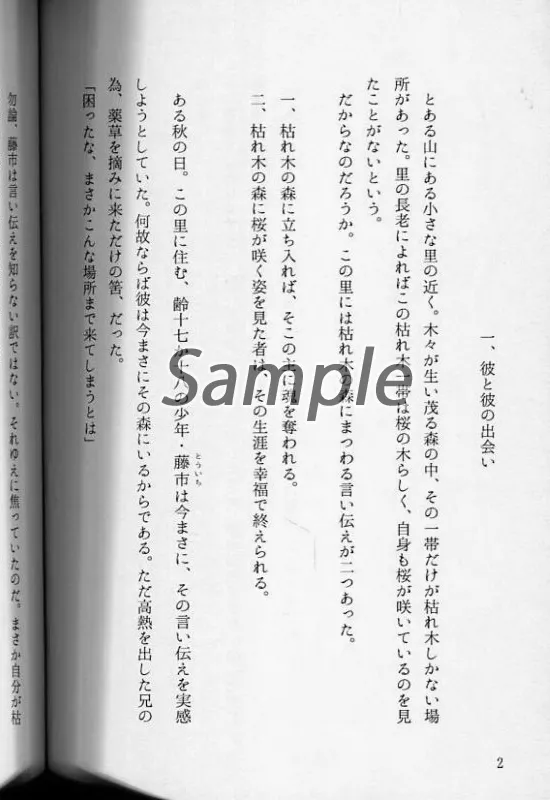 一、彼と彼の出会い
とある山にある小さな里の近く。木々が生い茂る森の中、その一帯だけが枯れ木しかない場
所があった。里の長老によればこの枯れ木一帯は桜の木らしく、自身も桜が咲いているのを見
たことがないという。
だからなのだろうか。この里には枯れ木の森にまつわる言い伝えが二つあった。
一、枯れ木の森に立ち入れば、そこの主に魂を奪われる。
二、枯れ木の森に桜が咲く姿を見た者は、その生涯を幸福で終えられる。
ある秋の日。この里に住む、齢十七か十八の少年・藤市は今まさに、その言い伝えを実感
とういち
しようとしていた。何故ならば彼は今まさにその森にいるからである。ただ高熱を出した兄の
為、薬草を摘みに来ただけの筈、だった。
「困ったな、まさかこんな場所まで来てしまうとは」
勿論、藤市は言い伝えを知らない訳ではない。それゆえに焦っていたのだ。まさか自分が枯
Sample
2